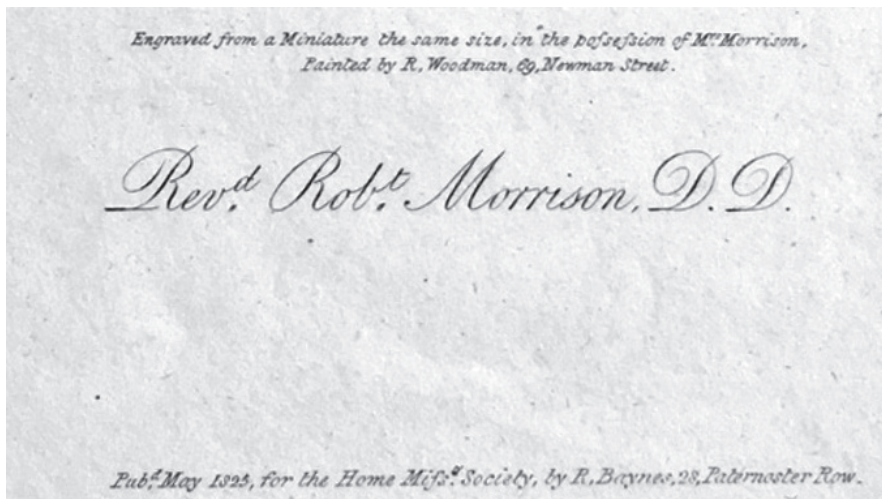 Engraved from a Miniature the same size, in the poſseſsion of Mrs Morrison,
Painted by R. Woodman, 69, Newman Street.
Revd. Robt. Morrison, D.D.
Pubd. May 1823, for the Home Miſsy. Society, by R. Baynes, 28, Paternoster Row.